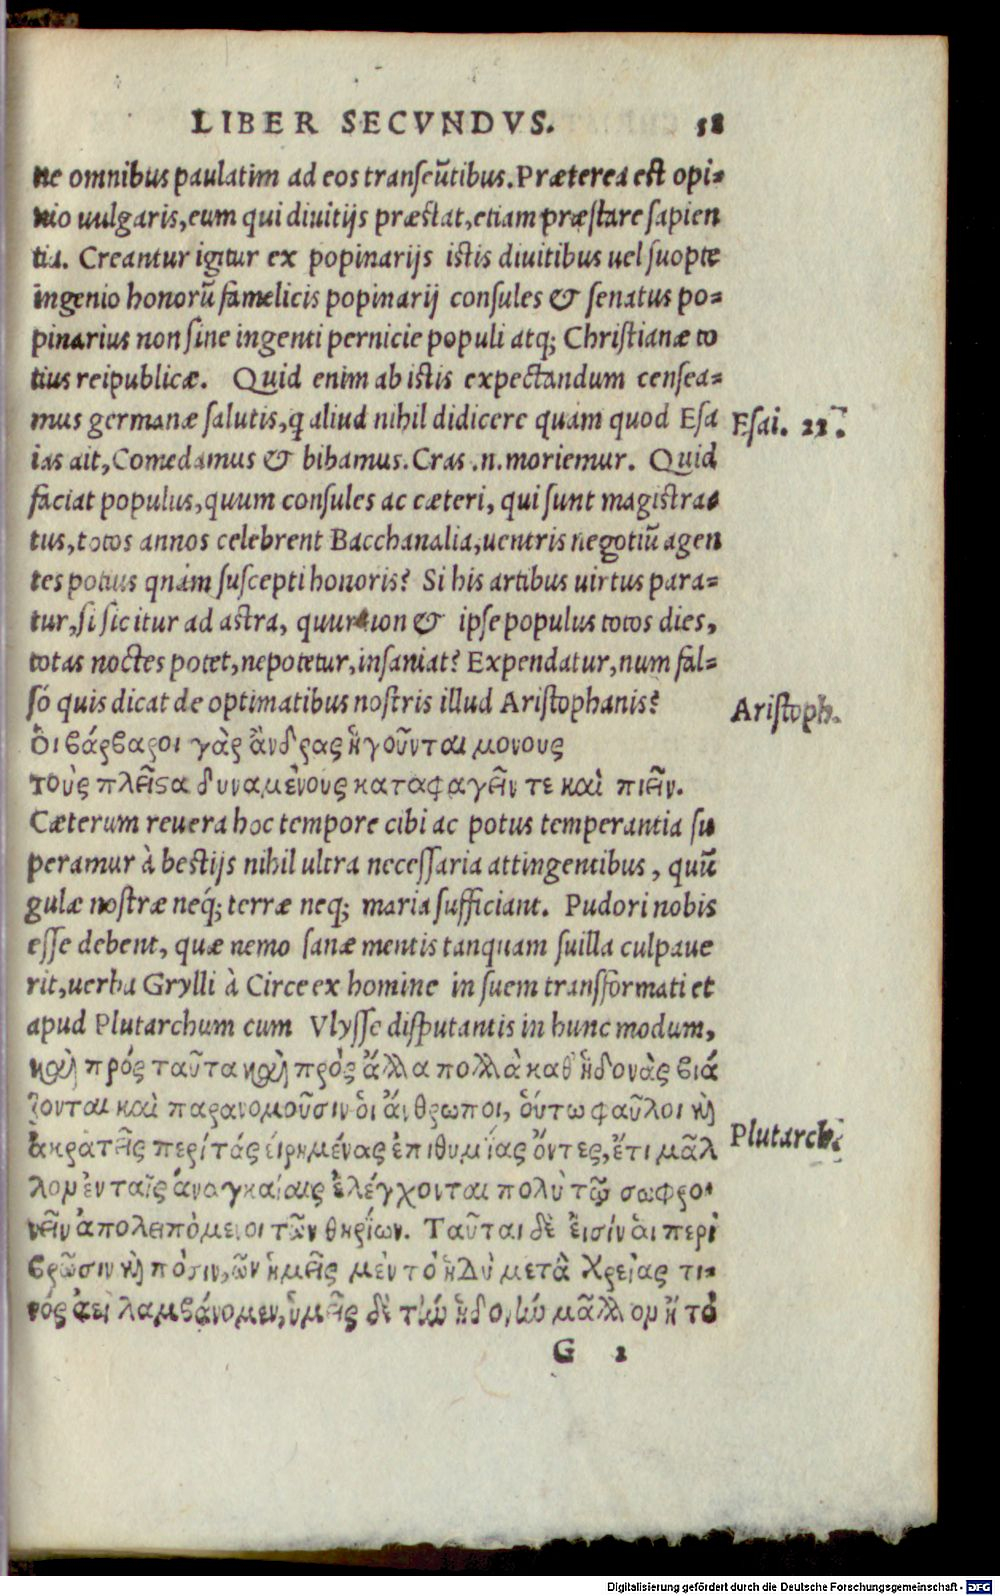 LIBER SECVNDVS. 58
ne omnibus paulatim ad eos transeũtibus. Præterea est opi-
nio uulgaris, eum qui diuitijs præstat, etiam præstare sapien
tia. Creantur igitur ex popinarijs istis diuitibus uel suopte
ingenio honorũ famelicis popinarij consules & senatus po-
pinarius non sine ingenti pernicie populi atq; Christianæ to
tius reipublicæ. Quid enim ab istis expectandum censea-
mus germanæ salutis, q aliud nihil didicere quàm quod Esa
Esai. 22.
ias ait, Comedamus & bibamus. Cras .n. moriemur. Quid
faciat populus, quum consules ac cæteri, qui sunt magistra-
tus, totos annos celebrent Bacchanalia, uentris negotiũ agen
tes potius quàm suscepti honoris? Si his artibus uirtus para-
tur, si sic itur ad astra, quur non & ipse populus totos dies,
totas noctes potet, nepotetur, insaniat? Expendatur, num fal-
sò quis dicat de optimatibus nostris illud Aristophanis?
Aristoph.
Ὁι βάρβαροι γὰρ ἄνδρας ἡγοῦνται μονους
τοὺς πλεῖϛα δυναμένους καταφαγεῖν τε καὶ πιεῖν.
Cæterum reuera hoc tempore cibi ac potus temperantia su
peramur à bestijs nihil ultra necessaria attingentibus, quũ
gulæ nostræ neq; terræ neq; maria sufficiant. Pudori nobis
esse debent, quæ nemo sanæ mentis tanquam suilla culpaue
rit, uerba Grylli à Circe ex homine in suem transformati et
apud Plutarchum cum Vlysse disputantis in hunc modum,
καὶ πρός ταῦτα καὶ πρὸς ἄλλα πολλὰ καθ' ἡδονὰς βιά
ζονται καὶ παρανομοῦσιν ὁι ἄνθρωποι, ὁύτω φαῦλοι καὶ
ἀκρατεῖς περί τάς ἐιρημένας ἐπιθυμίας ὄντες, ἔτι μᾶλ
Plutarch.
λομ ἐν ταῖς ἀναγκαίαις ἐλέγχονται πολὺ τῷ σωφρο-
νεῖν ἀπολειπόμενοι τῶν θηρίων. Ταῦται δὲ ἐισίν ἁι περί
βρῶσιν καὶ πόσιν, ὧν ἡμεῖς μὲν τὸ ἡδὺ μετὰ χρείας τι-
νός ἀεὶ λαμβάνομεν, ὑμεῖς δὲ τὴν ἡδονὴν μᾶλλομ ἢ τὸ
G 2
Digitalisierung gefördert durch die Deutsche Forschungsgemeinschaft - DFG